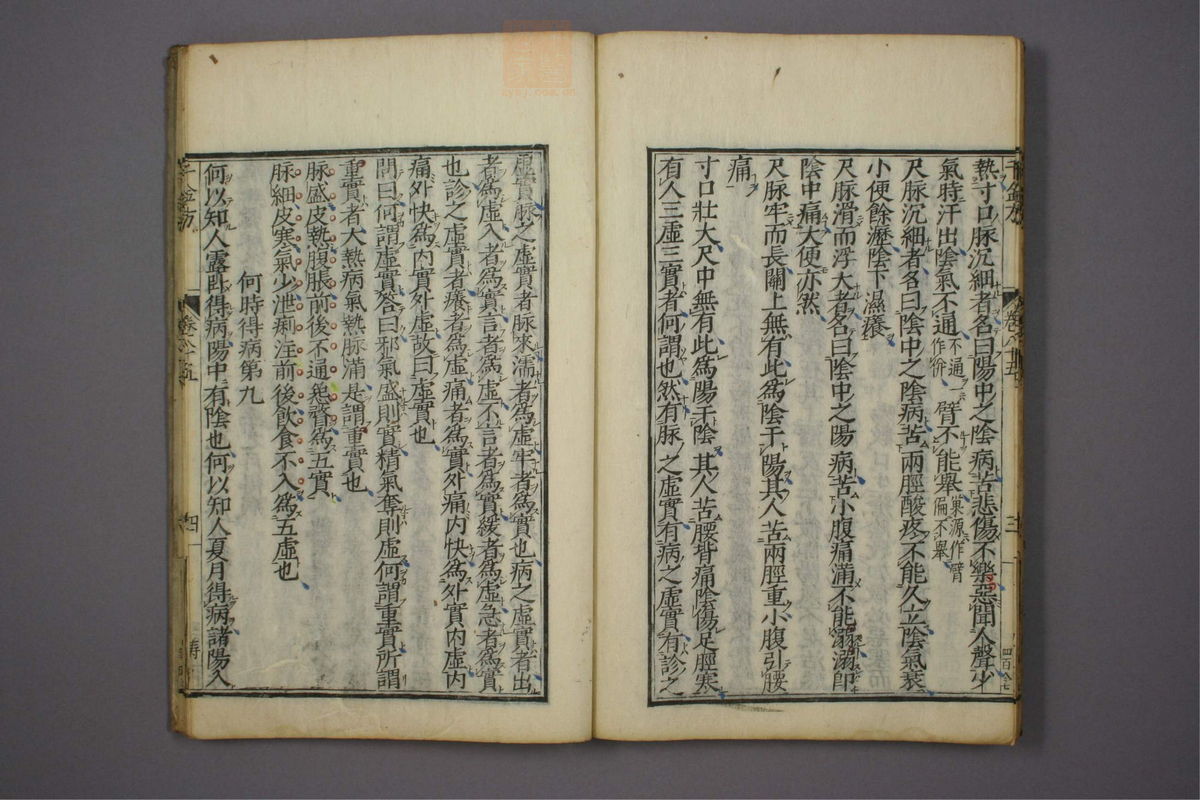 熱寸口脉沉細者名曰陽中之陰病苦悲傷不樂惡聞人聲少
氣時汗出陰氣不通不通作併臂不能舉巢源作臂偏不舉
尺脉沉細者名曰陰中之陰病苦兩脛酸疼不能久立陰氣衰
小便餘瀝陰下濕癢
尺脉滑而浮大者名曰陰中之陽病苦小腹痛滿不能溺溺即
陰中痛大便亦然
尺脉牢而長關上無有此爲陰干陽其人苦兩脛重小腹引腰
痛
寸口壯大尺中無有此爲陽干陰其人苦腰背痛陰傷足脛寒
有人三虛三實者何謂也然有脉之虛實有病之虛實有診之
虛實脉之虛實者脉來濡者爲虛牢者爲實也病之虛實者出
者爲虛入者爲實言者爲虛不言者爲實緩者爲虛急者爲實
也診之虛實者癢者爲虛痛者爲實外痛内快爲外實内虛内
痛外快爲内實外虛故曰虛實也
問曰何謂虛實答曰邪氣盛則實精氣奪則虛何謂重實所謂
重實者大熱病氣熱脉滿是謂重實也
脉盛皮熱腹脹前後不通悶瞀爲五實
脉細皮寒氣少泄痢注前後飲食不入爲五虛也
何時得病第九
何以知人露卧得病陽中有陰也何以知人夏月得病諸陽入
千金方
四
三